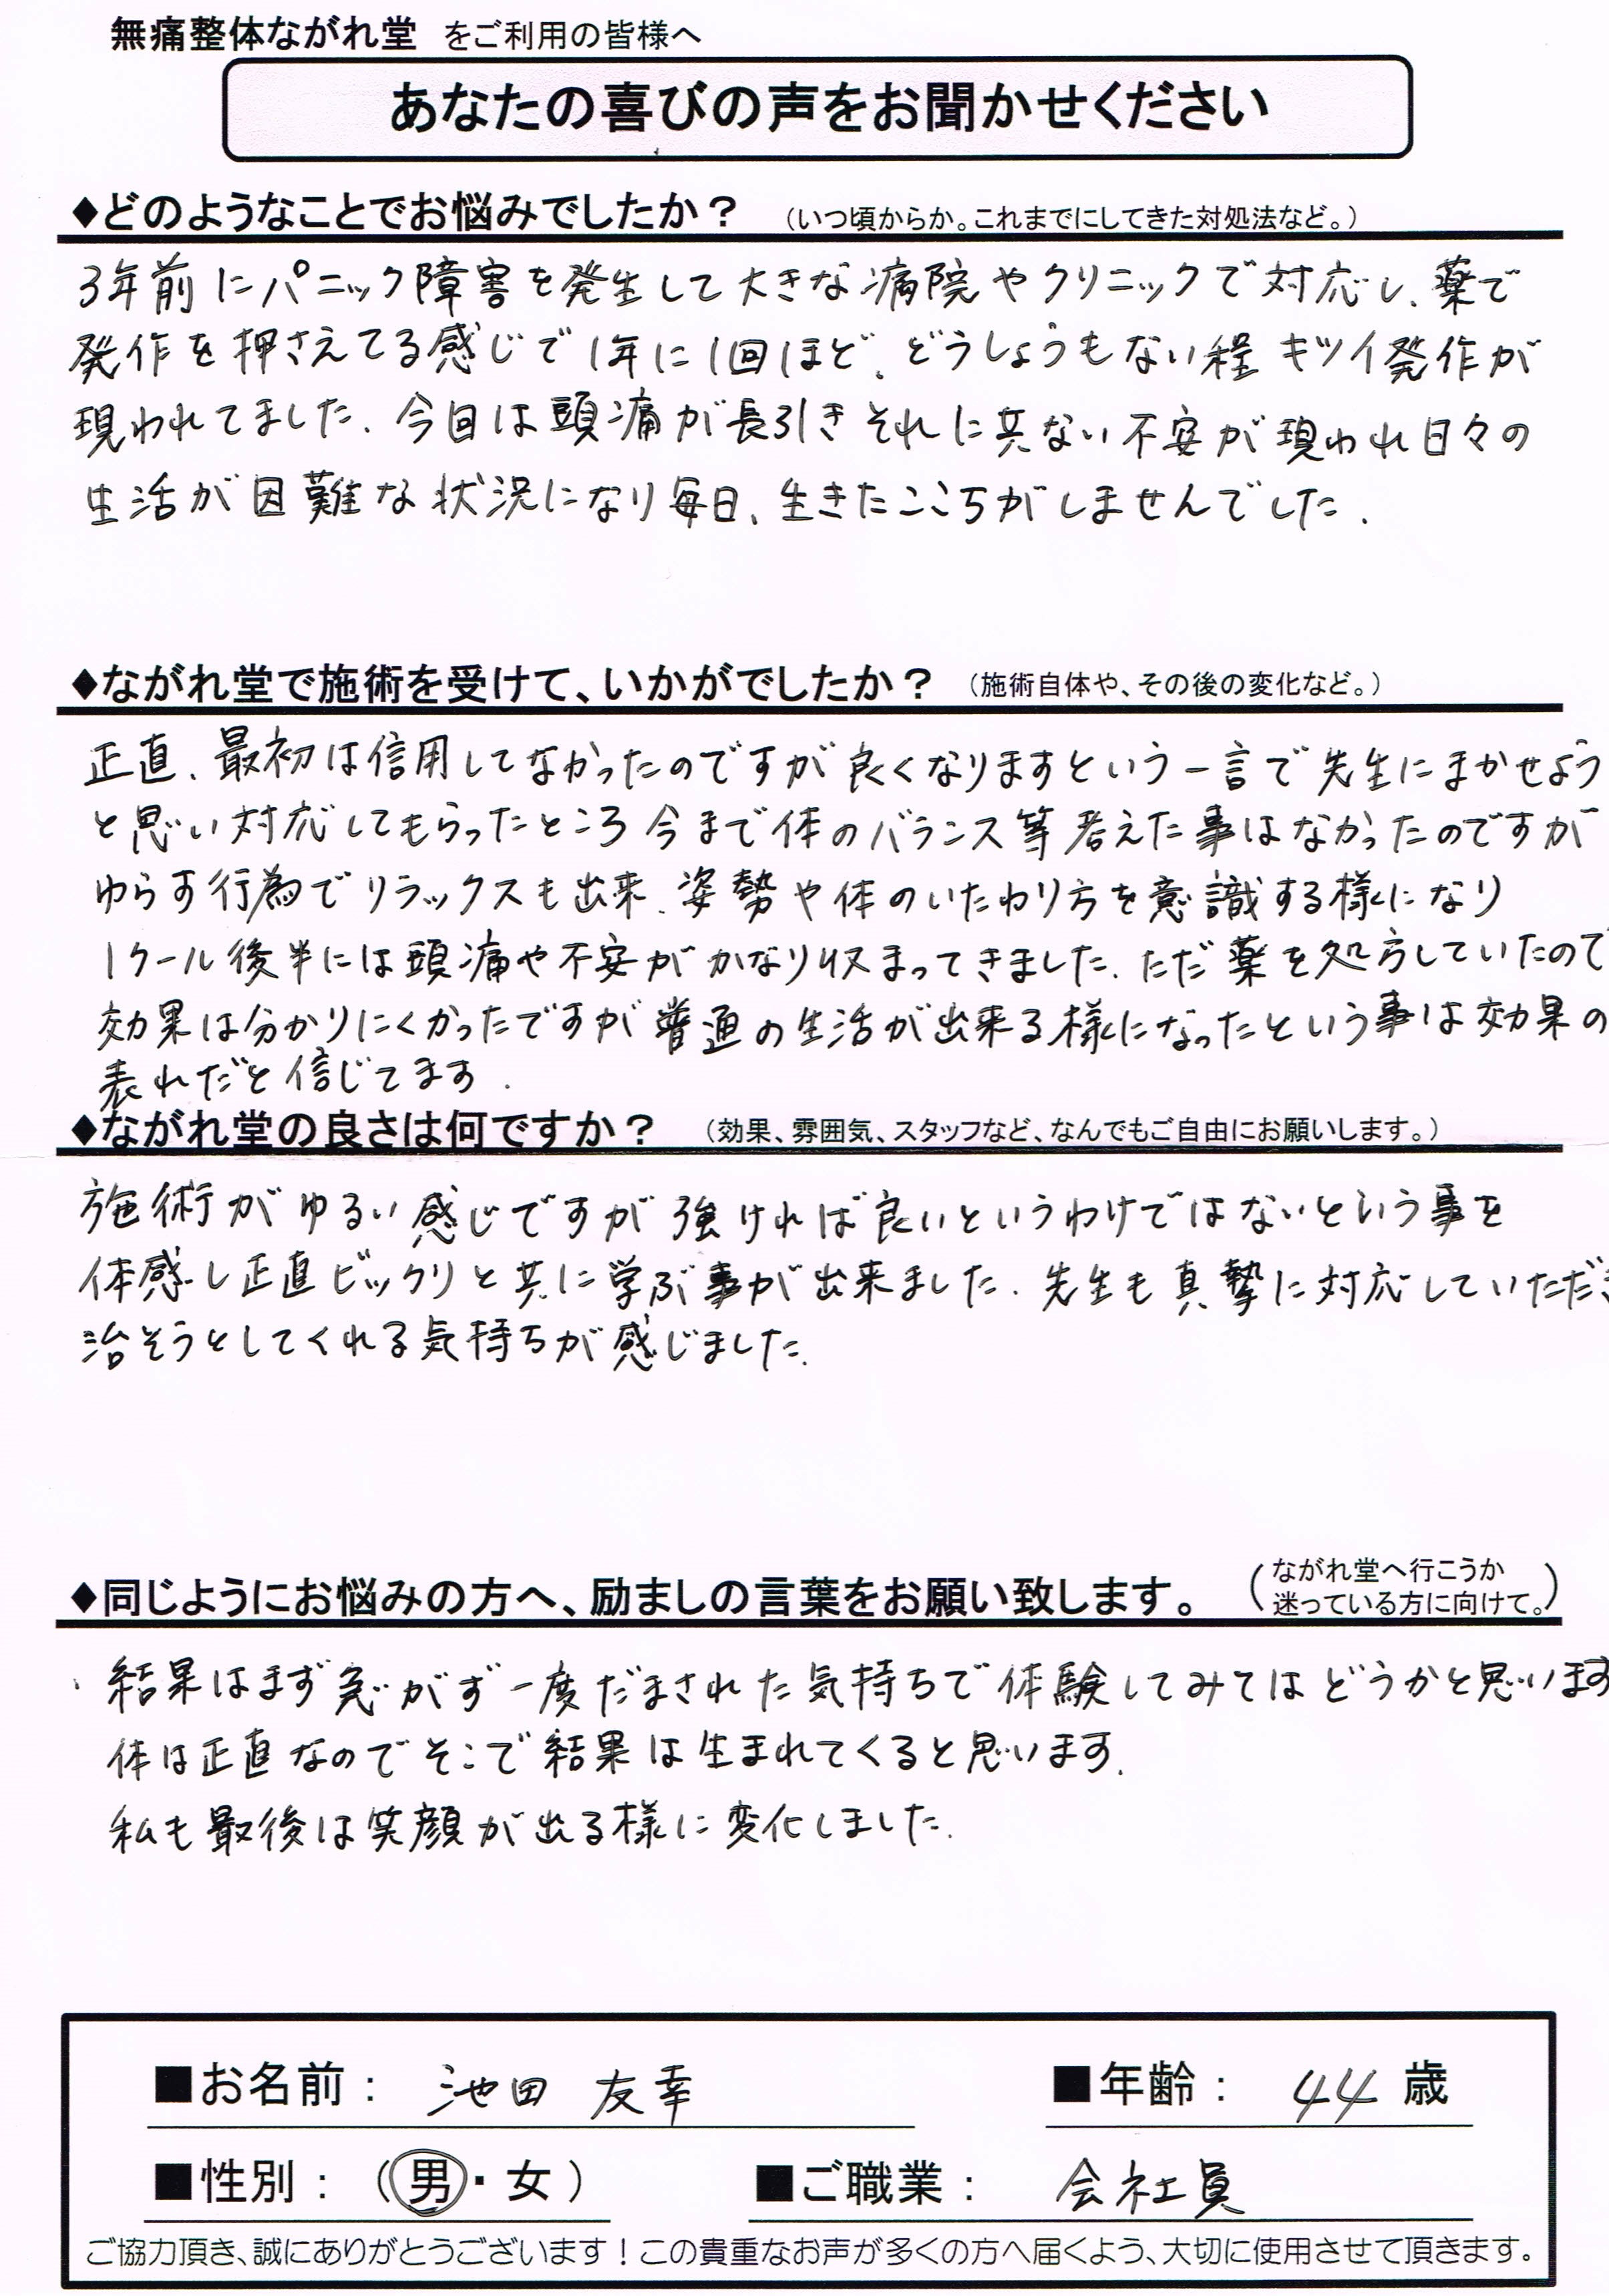 無痛整体ながれ堂 をご利用の皆様へ
あなたの喜びの声をお聞かせください
◆どのようなことでお悩みでしたか？ （いつ頃からか。これまでにしてきた対処法など。）
3年前にパニック障害を発生して大きな病院やクリニックで対応し、薬で
発作を押さえてる感じで1年に1回ほど、どうしょうもない程キツイ発作が
現われてました。今回は頭痛が長引きそれに共ない不安が現われ日々の
生活が困難な状況になり毎日、生きたここちがしませんでした。
◆ながれ堂で施術を受けて、いかがでしたか？ （施術自体や、その後の変化など。）
正直、最初は信用してなかったのですが良くなりますという一言で先生にまかせよう
と思い対応してもらったところ今まで体のバランス等考えた事はなかったのですが
ゆらす行為でリラックスも出来、姿勢や体のいたわり方を意識する様になり
1クール後半には頭痛や不安がかなり収まってきました。ただ薬を処方していたので
効果は分かりにくかったですが普通の生活が出来る様になったという事は効果の
表れだと信じてます。
◆ながれ堂の良さは何ですか？ （効果、雰囲気、スタッフなど、なんでもご自由にお願いします。）
施術がゆるい感じですが強ければ良いというわけではないという事を
体感し正直ビックリと共に学ぶ事が出来ました。先生も真摯に対応していただき
治そうとしてくれる気持ちが感じました。
◆同じようにお悩みの方へ、励ましの言葉をお願い致します。 （ながれ堂へ行こうか
迷っている方に向けて。）
結果はまず急がず一度だまされた気持ちで体験してみてはどうかと思います
体は正直なのでそこで結果は生まれてくると思います。
私も最後は笑顔が出る様に変化しました。
■お名前： 池田 友幸 ■年齢： 44 歳
■性別：（男・女） ■ご職業： 会社員
ご協力頂き、誠にありがとうございます！この貴重なお声が多くの方へ届くよう、大切に使用させて頂きます。